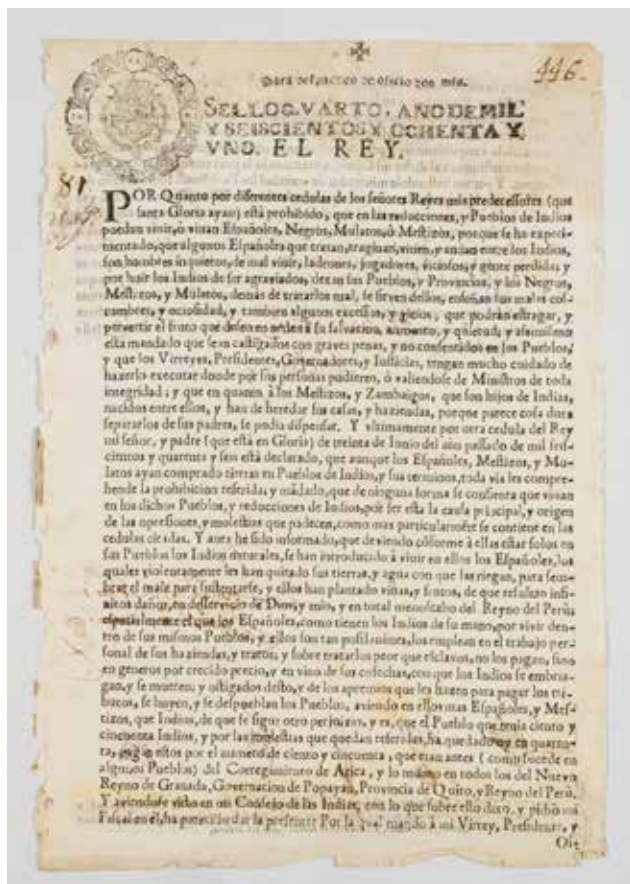 446.
Para despachos de oficio dos mrs.
SELLO QVARTO, AÑO DE MIL
Y SEISCIENTOS Y OCHENTA Y
VNO. EL REY.
81
POR Quanto por diferentes cedulas de los señores Reyes mis predecessores (que
santa Gloria ayan) está prohibido, que en las reducciones, y Pueblos de Indios
puedan vivir, ò vivan Españoles, Negros, Mulatos, ò Mestizos, porque se ha experi-
mentado, que algunos Españoles que tratan, traginan, viven, y andan entre los Indios,
son hombres inquietos, de mal vivir, ladrones, jugadores, viciosos, y gente perdida; y
por huir los Indios de ser agraviados, dexan sus Pueblos, y Provincias, y los Negros,
Mestizos, y Mulatos, demás de tratarlos mal, se sirven dellos, enseñan sus malas cos-
tumbres, y ociosidad, y tambien algunos excessos, y vicios, que podrán estragar, y
pervertir el fruto que deseo en orden à su salvacion, aumento, y quietud; y assimismo
está mandado que sean castigados con graves penas, y no consentidos en los Pueblos,
y que los Virreyes, Presidentes, Governadores, y Iusticias, tengan mucho cuidado de
hazerlo executar donde por sus personas pudieren, ò valiendose de Ministros de toda
integridad; y que en quanto à los Mestizos, y Zambaigos, que son hijos de Indias,
nacidos entre ellos, y han de heredar sus casas, y haziendas, porque parece cosa dura
separarlos de sus padres, se podia dispensar. Y vltimamente por otra cedula del Rey
mi señor, y padre (que está en Gloria) de treinta de Iunio del año passado de mil seis-
cientos y quarenta y seis está declarado, que aunque los Españoles, Mestizos, y Mu-
latos ayan comprado tierras en Pueblos de Indios, y sus terminos, toda via les compre-
hende la prohibicion referida, y mãdado, que de ninguna forma se consienta que vivan
en los dichos Pueblos, y reducciones de Indios, por ser esta la causa prĩcipal, y origen
de las opresiones, y molestias que padecen, como mas particularmẽte se contiene en las
cedulas citadas. Y aora he sido informado, que deviendo cõforme à ellas estar solos en
sus Pueblos los Indios naturales, se han introducido à vivir en ellos los Españoles, los
quales violentamente les han quitado sus tierras, y agua con que las riegan, para sem-
brar el maiz para sustentarse, y ellos han plantado viñas, y frutos, de que resultan infi-
nitos daños, en desservicio de Dios, y mio, y en total menoscabo del Reyno del Perù;
especialmente el que los Españoles, como tienen los Indios de su mano, por vivir den-
tro de sus mismos Pueblos, y ellos son tan pusilanimes, los emplean en el trabajo per-
sonal de sus haziendas, y tratos, y sobre tratarlos peor que esclavos, no los pagan, sino
en generos por crecido precio, y en vino de sus cosechas, con que los Indios se embria-
gan, y se mueren; y ostigados desto, y de los apremios que les hazen para pagar los tri-
butos, se huyen, y se despueblan los Pueblos, aviendo en ellos mas Españoles, y Mes-
tizos, que Indios, de que se sigue otro perjuizio, y es, que el Pueblo que tenia ciento y
cincuenta Indios, y por las molestias que quedan referidas, ha quedado oy en quaren-
ta, pagan estos por el numero de ciento y cincuenta, que eran antes (como sucede en
algunos Pueblos) del Corregimiento de Arica, y lo mismo en todos los del Nuevo
Reyno de Granada, Governacion de Popayan, Provincia de Quito, y Reyno del Perù.
Y aviendose visto en mi Consejo de las Indias, con lo que sobre ello dixo, y pidiò mi
Fiscal en él, ha parecido dar la presente Por la qual mando à mi Virrey, Presidente, y
Oi-